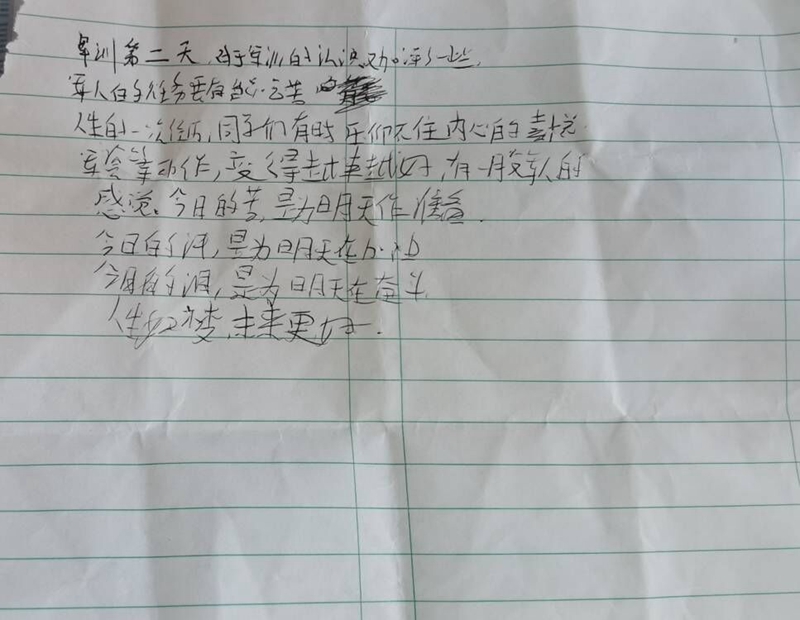 军训第二天，对于军训的认识又加深了一些，
军人的任务要有
人生的一次经历，同学们有时 内心的喜悦
军会等动作，变得越来越好，有一股军人的
感觉。今日的苦，是为明天作准备.
今日的汗，是为明天在
今日的泪，是为明天在奋斗
人生如梦，未来更好.